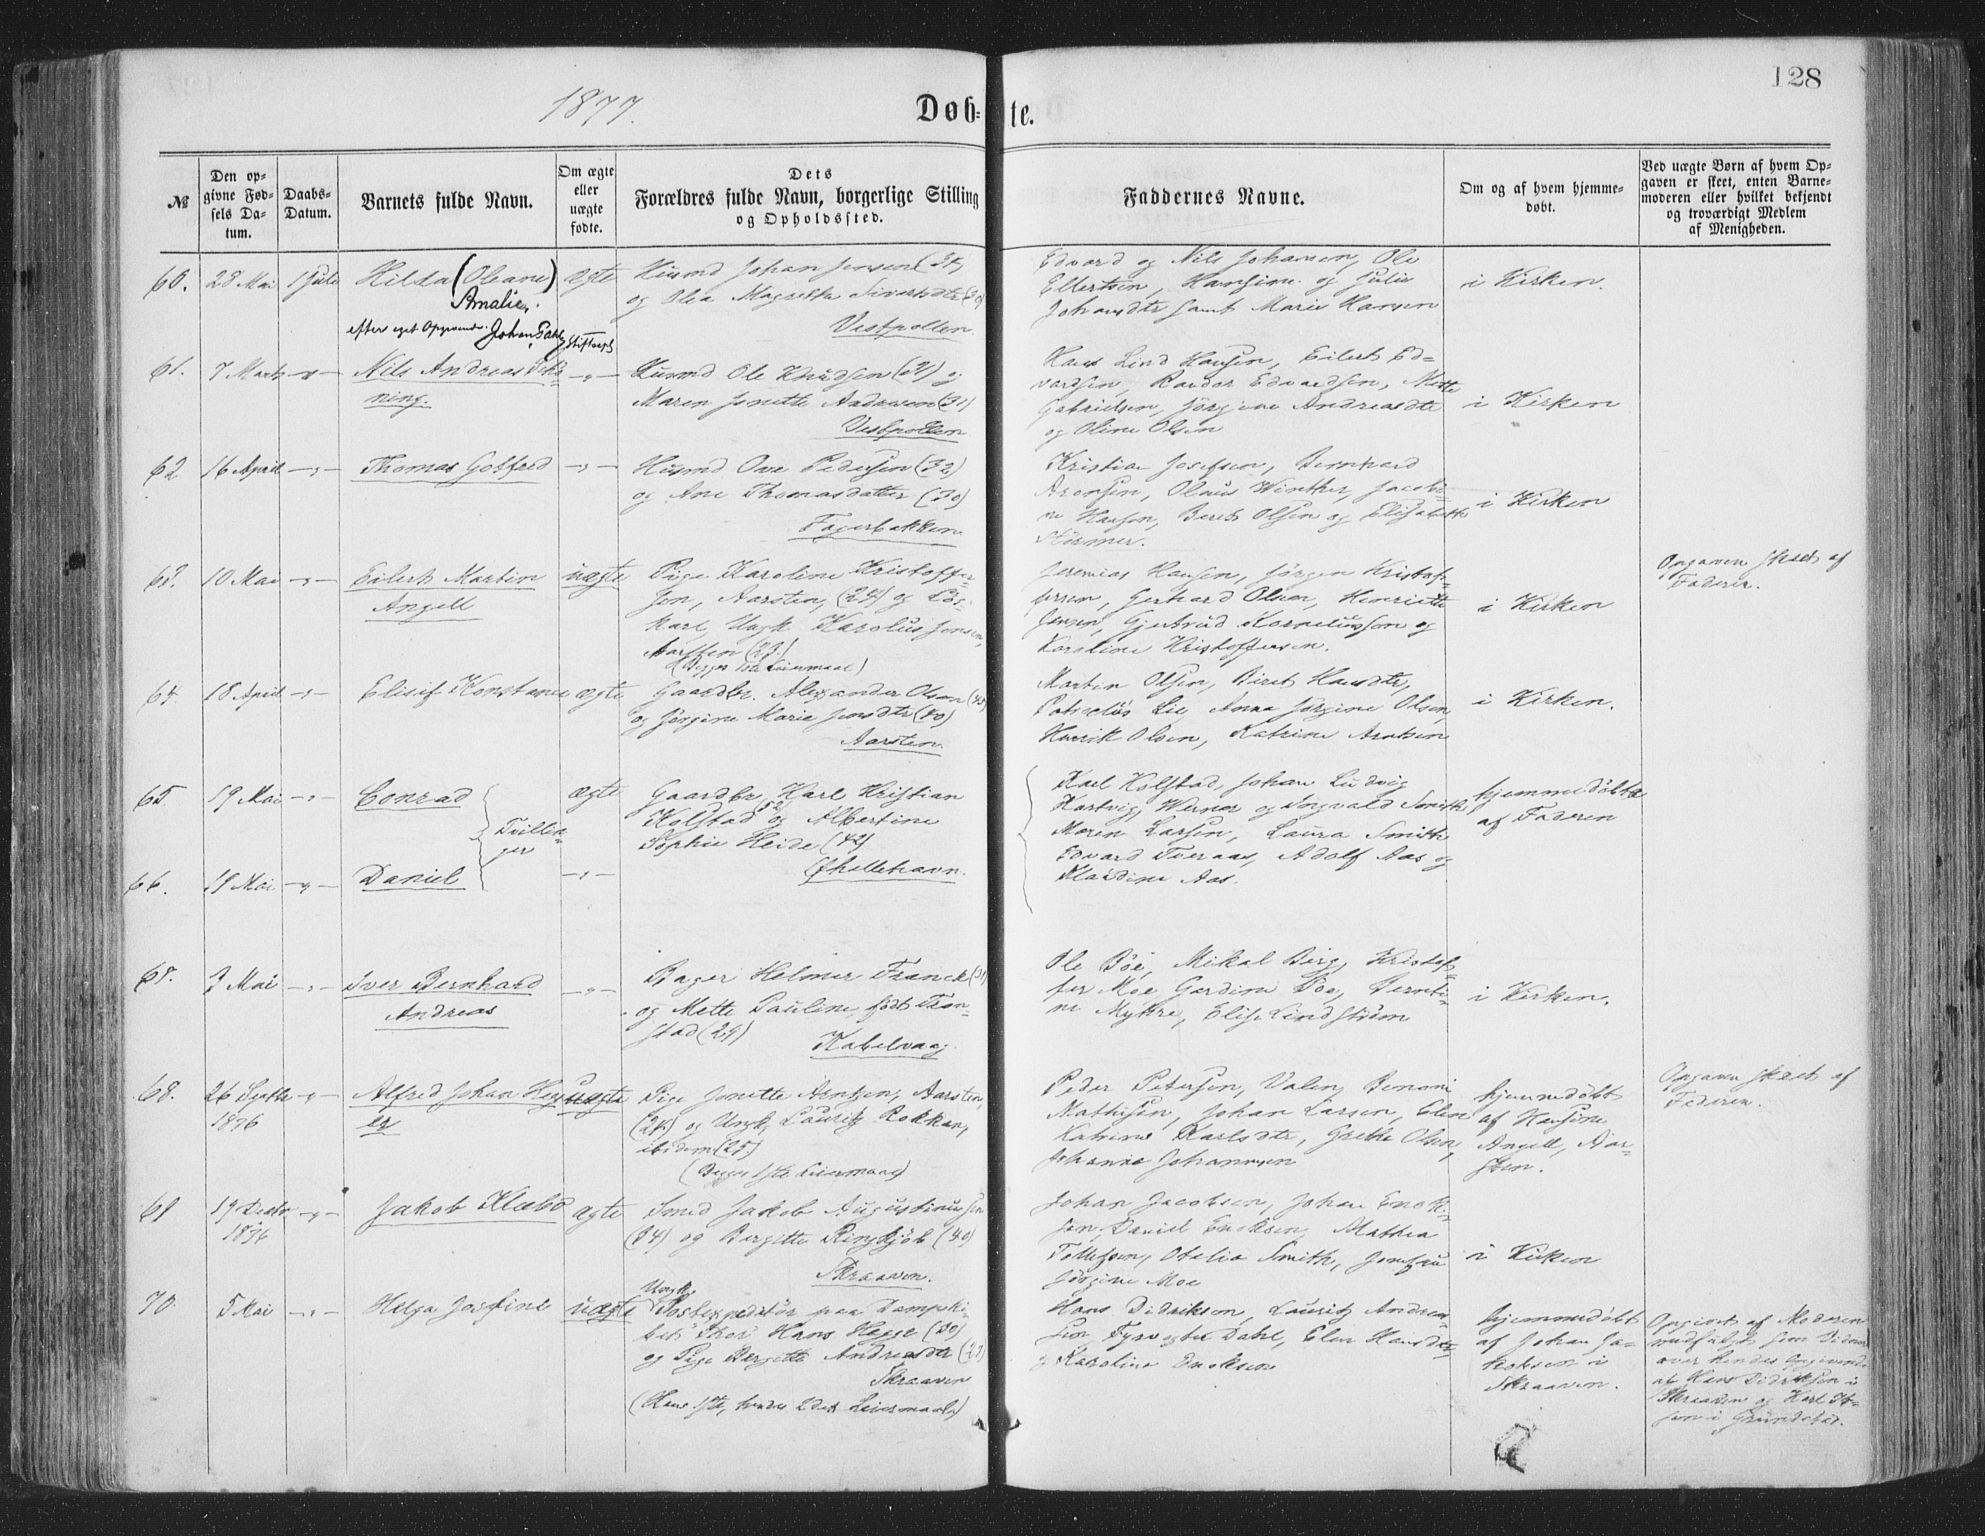 128
1877.
Døb-te.
№
Den op-
givne Fød-
sels Da-
tum.
Daabs-
Datum.
Barnets fulde Navn.
Om ægte
eller
uægte
fødte.
Dets
Forældres fulde Navn, borgerlige Stilling
og Opholdssted.
Faddernes Navne.
Om og af hvem hjemme-
døbt.
Ved uægte Børn af hvem Op-
gaven er skeet, enten Barne-
moderen eller hvilket bekjendt
og troværdigt Medlem
af Menigheden.
60. 28 Mai 1 Juli Hilda (Oleane) ægte Husmd Johan Jensen
Amalie.
og Olea Magretha Sivertsdtr
Vestpollen
efter eget Opgivende
Edvard og Nils Johansen, Ole
Ellertsen, Hansine og Julie
Johansdtr samt Marie Hansen
i Kirken.
61. 7 Marts -"- Nils Andreas -"- Husmd Ole Knudsen og
ning.
Maren Jonette Andersen (31)
Vestpollen
Hans Lind Hansen, Eilert Ed-
vardsen, Edvardsen, Mette
Gabrielsen, Jørgine Andreasdtr
og Oline Olsen
i Kirken
62 16 April -"- Thomas Gotfred -"- Husmd Ove Pedersen (32)
og Ane Thomasdatter (30)
Fagerbakken
Kristian Josefsen, Bernhard
Aronsen, Olaus Winther, Jacobi-
ne Hansen, Berit Olsen og Elisabeth
Størmer.
i Kirken
63. 10 Mai -"- Eilert Martin uægte Pige Karoline Kristoffer-
Angell
sen, Aarsten, (24) og Løs-
karl, Ungk Karolus Jensen,
Aarsten (23.)
(Begges 1ste Leiermaal)
Jeremias Hansen, Jørgen Kristof-
fersen, Gerhard Olsen, Henriette
Jensen, Gjertrud Korneliussen og
Karoline Kristoffersen.
i Kirken
Opgaven skeet af
Faderen.
64. 18 April -"- Elisif Konstanse ægte Gaardbr. Alexander Olsen
og Jørgine Marie Jensdtr (40)
Aarsten.
Morten Olsen, Berit Hansdtr,
Lie, Anna Jørgine Olsen,
Henrik Olsen, Katrine Arntsen
i Kirken.
65. 19 Mai -"- Conrad ægte Gaardbr Karl Kristian
Tvillin-
ger
Holstad og Albertine
Sophie Heide (42)
66. 19 Mai -"- Daniel -"-
Ørhellehavn.
Karl Holstad, Johan Ludvig
Hartvig, Werner og Ingvald Smith
Maren Larsen, Laura Smith
Edvard Tveraas, Adolf Aas og
Klaudine Aas.
hjemmedøbte
af Faderen
67. 3 Mai -"- Iver Bernhard -"- Bager Helmer Franck
Andreas
og Mette Pauline født Tran-
stad (29)
Kabelvaag.
Ole Bøe, Mikal Berg, Kristof-
fer Moe Gardine Boe, Bernti-
ne Myhre, Elise Lindstrøm
i Kirken.
68. 26 Septbr -"- Alfred Johan uægte Pige Jonette Arntsen, Aarsten,
1876
og Ungk. Lauritz Rokkan,
ibidem (25.)
(Begges 1ste Leiermaal)
Peder Petersen, Valen, Benoni
Mathisen, Johan Larsen, Elen
Katrine Karlsdtr, Grethe Olsen,
Johanna Johannesen
hjemmedøbt
af Hansine
Angell, Aar-
sten.
Opgaven skeet af
Faderen.
69 19 Decbr -"- Jakob Klæbo ægte Smed Jakob Augustinussen
1876
(34) og Birgitte Ringkjøb (40)
Skraaven.
Johan Jacobsen, Johan Enok-
sen, Daniel Enoksen, Mathea
Tollefsen, Otelia Smith,
Jørgine Moe
i Kirken
70. 5 Mai -"- Helga Josfine uægte Ungk. Postexpeditør paa Dampski-
bet Thor Hans Hagge (30)
og Pige Bergitte Andreasdtr
Skraaven
(Hans 1ste, hendes 2det Leiermaal)
Hans Didriksen, Lauritz Andrea-
sen, Dahl, Elen Hansdtr,
og Karoline Enoksen
hjemmedøbt
af Johan Ja-
kobsen i
Skraaven.
Opgivet af Moderen
medfulgt som Vidner
over hendes Opgivende
af Hans Didriksen i
Skraaven og Karl
sen i Grundstad.